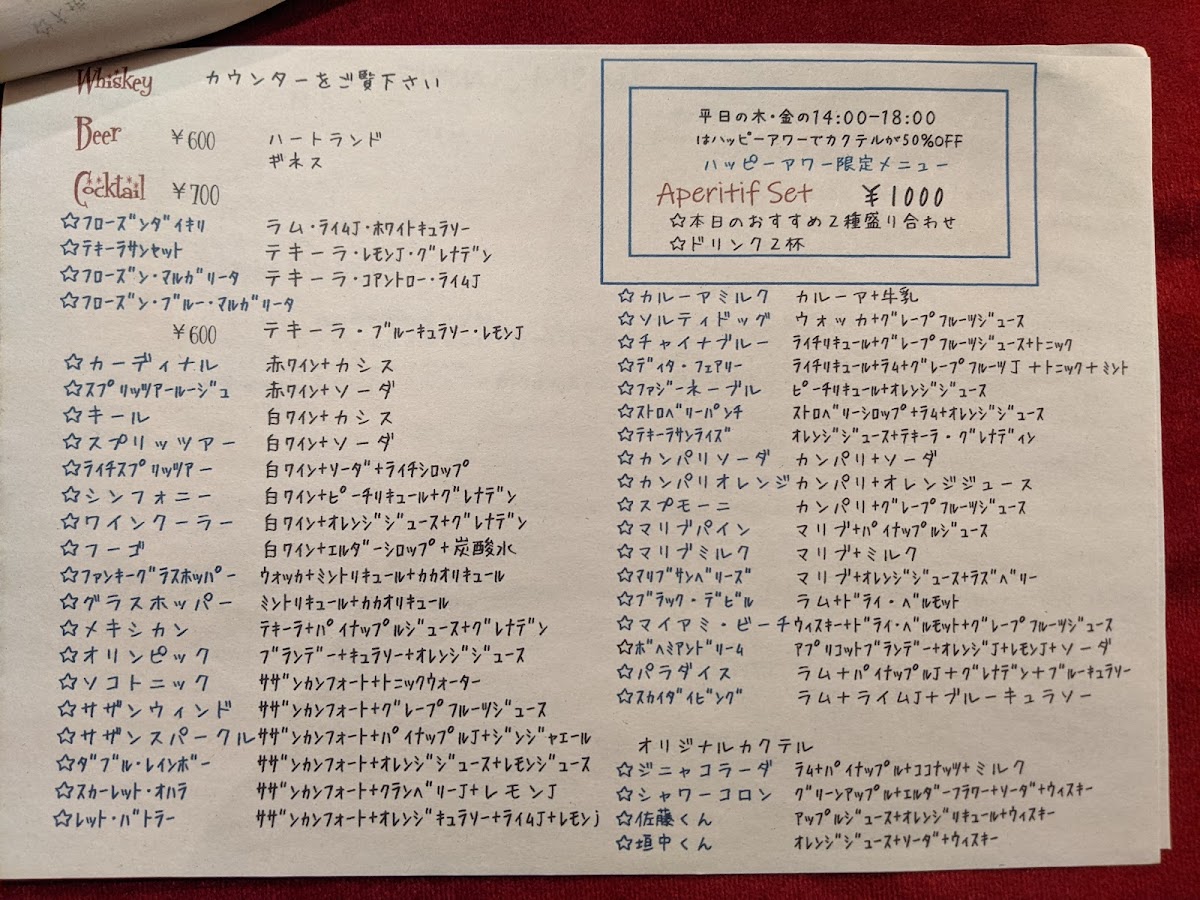 Whiskey カウンターをご覧下さい
Beer ￥600 ハートランド
ギネス
Cocktail ￥700
☆ﾌﾛｰｽﾞﾝﾀﾞｲｷﾘ ラム・ﾗｲﾑJ・ﾎﾜｲﾄｷｭﾗﾘｰ
☆ﾃｷｰﾗｻﾝｾｯﾄ テキーラ・ﾚﾓﾝJ・ｸﾞﾚﾅﾃﾞﾝ
☆ﾌﾛｰｽﾞﾝ・ﾏﾙｶﾞﾘｰﾀ テキーラ・ｺｱﾝﾄﾛｰ・ﾗｲﾑJ
☆ﾌﾛｰｽﾞﾝ・ﾌﾞﾙｰ・ﾏﾙｶﾞﾘｰﾀ
￥600 テキーラ・ﾌﾞﾙｰｷｭﾗﾘｰ・ﾚﾓﾝJ
☆カーディナル 赤ﾜｲﾝ+カシス
☆ｽﾌﾟﾘｯﾂｱｰﾙｰｼﾞｭ 赤ﾜｲﾝ+ソーダ
☆キール 白ﾜｲﾝ+カシス
☆スプリッツアー 白ﾜｲﾝ+ソーダ
☆ﾗｲﾁｽﾌﾟﾘｯﾂｱｰ 白ﾜｲﾝ+ｿｰﾀﾞ+ﾗｲﾁｼﾛｯﾌﾟ
☆シンフォニー 白ﾜｲﾝ+ﾋﾟｰﾁﾘｷｭｰﾙ+ｸﾞﾚﾅﾃﾞﾝ
☆ワインクーラー 白ﾜｲﾝ+ｵﾚﾝｼﾞｼﾞｭｰｽ+ｸﾞﾚﾅﾃﾞﾝ
☆フーゴ 白ﾜｲﾝ+ｴﾙﾀﾞｰｼﾛｯﾌﾟ+炭酸水
☆ﾌｧﾝｷｰｸﾞﾗｽﾎｯﾊﾟｰ ｳｫｯｶ+ﾐﾝﾄﾘｷｭｰﾙ+ｶｶｵﾘｷｭｰﾙ
☆グラスホッパー ﾐﾝﾄﾘｷｭｰﾙ+ｶｶｵﾘｷｭｰﾙ
☆メキシカン ﾃｷｰﾗ+ﾊﾟｲﾅｯﾌﾟﾙｼﾞｭｰｽ+ｸﾞﾚﾅﾃﾞﾝ
☆オリンピック ﾌﾞﾗﾝﾃﾞｰ+ｷｭﾗﾘｰ+ｵﾚﾝｼﾞｼﾞｭｰｽ
☆ソコトニック ｻｻﾞﾝｶﾝﾌｫｰﾄ+ﾄﾆｯｸｳｫｰﾀｰ
☆サザンウィンド ｻｻﾞﾝｶﾝﾌｫｰﾄ+ｸﾞﾚｰﾌﾟﾌﾙｰﾂｼﾞｭｰｽ
☆サザンスパークル ｻｻﾞﾝｶﾝﾌｫｰﾄ+ﾊﾟｲﾅｯﾌﾟﾙJ+ｼﾞﾝｼﾞｬｴｰﾙ
☆ﾀﾞﾌﾞﾙ・ﾚｲﾝﾎﾞｰ ｻｻﾞﾝｶﾝﾌｫｰﾄ+ｵﾚﾝｼﾞｼﾞｭｰｽ+ﾚﾓﾝｼﾞｭｰｽ
☆ｽｶｰﾚｯﾄ・ｵﾊﾗ ｻｻﾞﾝｶﾝﾌｫｰﾄ+ｸﾗﾝﾍﾞﾘｰJ+レモンJ
☆ﾚｯﾄ・ﾊﾞﾄﾗｰ ｻｻﾞﾝｶﾝﾌｫｰﾄ+ｵﾚﾝｼﾞｷｭﾗﾘｰ+ﾗｲﾑJ+ﾚﾓﾝj
平日の木・金の14:00-18:00
はハッピーアワーでカクテルが50%OFF
ハッピーアワー限定メニュー
Aperitif Set ￥1000
☆本日のおすすめ2種盛り合わせ
☆ドリンク2杯
☆カルーアミルク カルーア+牛乳
☆ソルティドッグ ウォッカ+ｸﾞﾚｰﾌﾟﾌﾙｰﾂｼﾞｭｰｽ
☆チャイナブルー ﾗｲﾁﾘｷｭｰﾙ+ｸﾞﾚｰﾌﾟﾌﾙｰﾂｼﾞｭｰｽ+ﾄﾆｯｸ
☆ﾃﾞｨﾀ・ﾌｪｱﾘｰ ﾗｲﾁﾘｷｭｰﾙ+ﾗﾑ+ｸﾞﾚｰﾌﾟﾌﾙｰﾂJ+ﾄﾆｯｸ+ﾐﾝﾄ
☆ﾌｧｼﾞｰネーブル ﾋﾟｰﾁﾘｷｭｰﾙ+ｵﾚﾝｼﾞｼﾞｭｰｽ
☆ｽﾄﾛﾍﾞﾘｰﾊﾟﾝﾁ ｽﾄﾛﾍﾞﾘｰｼﾛｯﾌﾟ+ﾗﾑ+ｵﾚﾝｼﾞｼﾞｭｰｽ
☆ﾃｷｰﾗｻﾝﾗｲｽﾞ ｵﾚﾝｼﾞｼﾞｭｰｽ+ﾃｷｰﾗ・ｸﾞﾚﾅﾃﾞｨﾝ
☆カンパリソーダ カンパリ+ソーダ
☆カンパリオレンジ カンパリ+オレンジジュース
☆スプモーニ カンパリ+ｸﾞﾚｰﾌﾟﾌﾙｰﾂｼﾞｭｰｽ
☆マリブパイン マリブ+ﾊﾟｲﾅｯﾌﾟﾙｼﾞｭｰｽ
☆マリブミルク マリブ+ミルク
☆ﾏﾘﾌﾞｻﾝﾍﾞﾘｰｽﾞ マリブ+ｵﾚﾝｼﾞｼﾞｭｰｽ+ﾗｽﾞﾍﾞﾘｰ
☆ﾌﾞﾗｯｸ・ﾃﾞﾋﾞﾙ ラム+ﾄﾞﾗｲ・ﾍﾞﾙﾓｯﾄ
☆マイアミ・ビーチ ｳｨｽｷｰ+ﾄﾞﾗｲ・ﾍﾞﾙﾓｯﾄ+ｸﾞﾚｰﾌﾟﾌﾙｰﾂｼﾞｭｰｽ
☆ﾎﾞﾍﾐｱﾝﾄﾞﾘｰﾑ ｱﾌﾟﾘｺｯﾄﾌﾞﾗﾝﾃﾞｰ+ｵﾚﾝｼﾞJ+ﾚﾓﾝJ+ソーダ
☆パラダイス ラム+ﾊﾟｲﾅｯﾌﾟﾙJ+ｸﾞﾚﾅﾃﾞﾝ+ﾌﾞﾙｰｷｭﾗﾘｰ
☆ｽｶｲﾀﾞｲﾋﾞﾝｸﾞ ラム+ライムJ+ブルーキュラソー
オリジナルカクテル
☆ジニャコラーダ ﾗﾑ+ﾊﾟｲﾅｯﾌﾟﾙ+ｺｺﾅｯﾂ+ミルク
☆シャワーコロン ｸﾞﾘｰﾝｱｯﾌﾟﾙ+ｴﾙﾀﾞｰﾌﾗﾜｰ+ｿｰﾀﾞ+ｳｨｽｷｰ
☆佐藤くん ｱｯﾌﾟﾙｼﾞｭｰｽ+ｵﾚﾝｼﾞﾘｷｭｰﾙ+ｳｨｽｷｰ
☆垣中くん ｵﾚﾝｼﾞｼﾞｭｰｽ+ｿｰﾀﾞ+ｳｨｽｷｰ